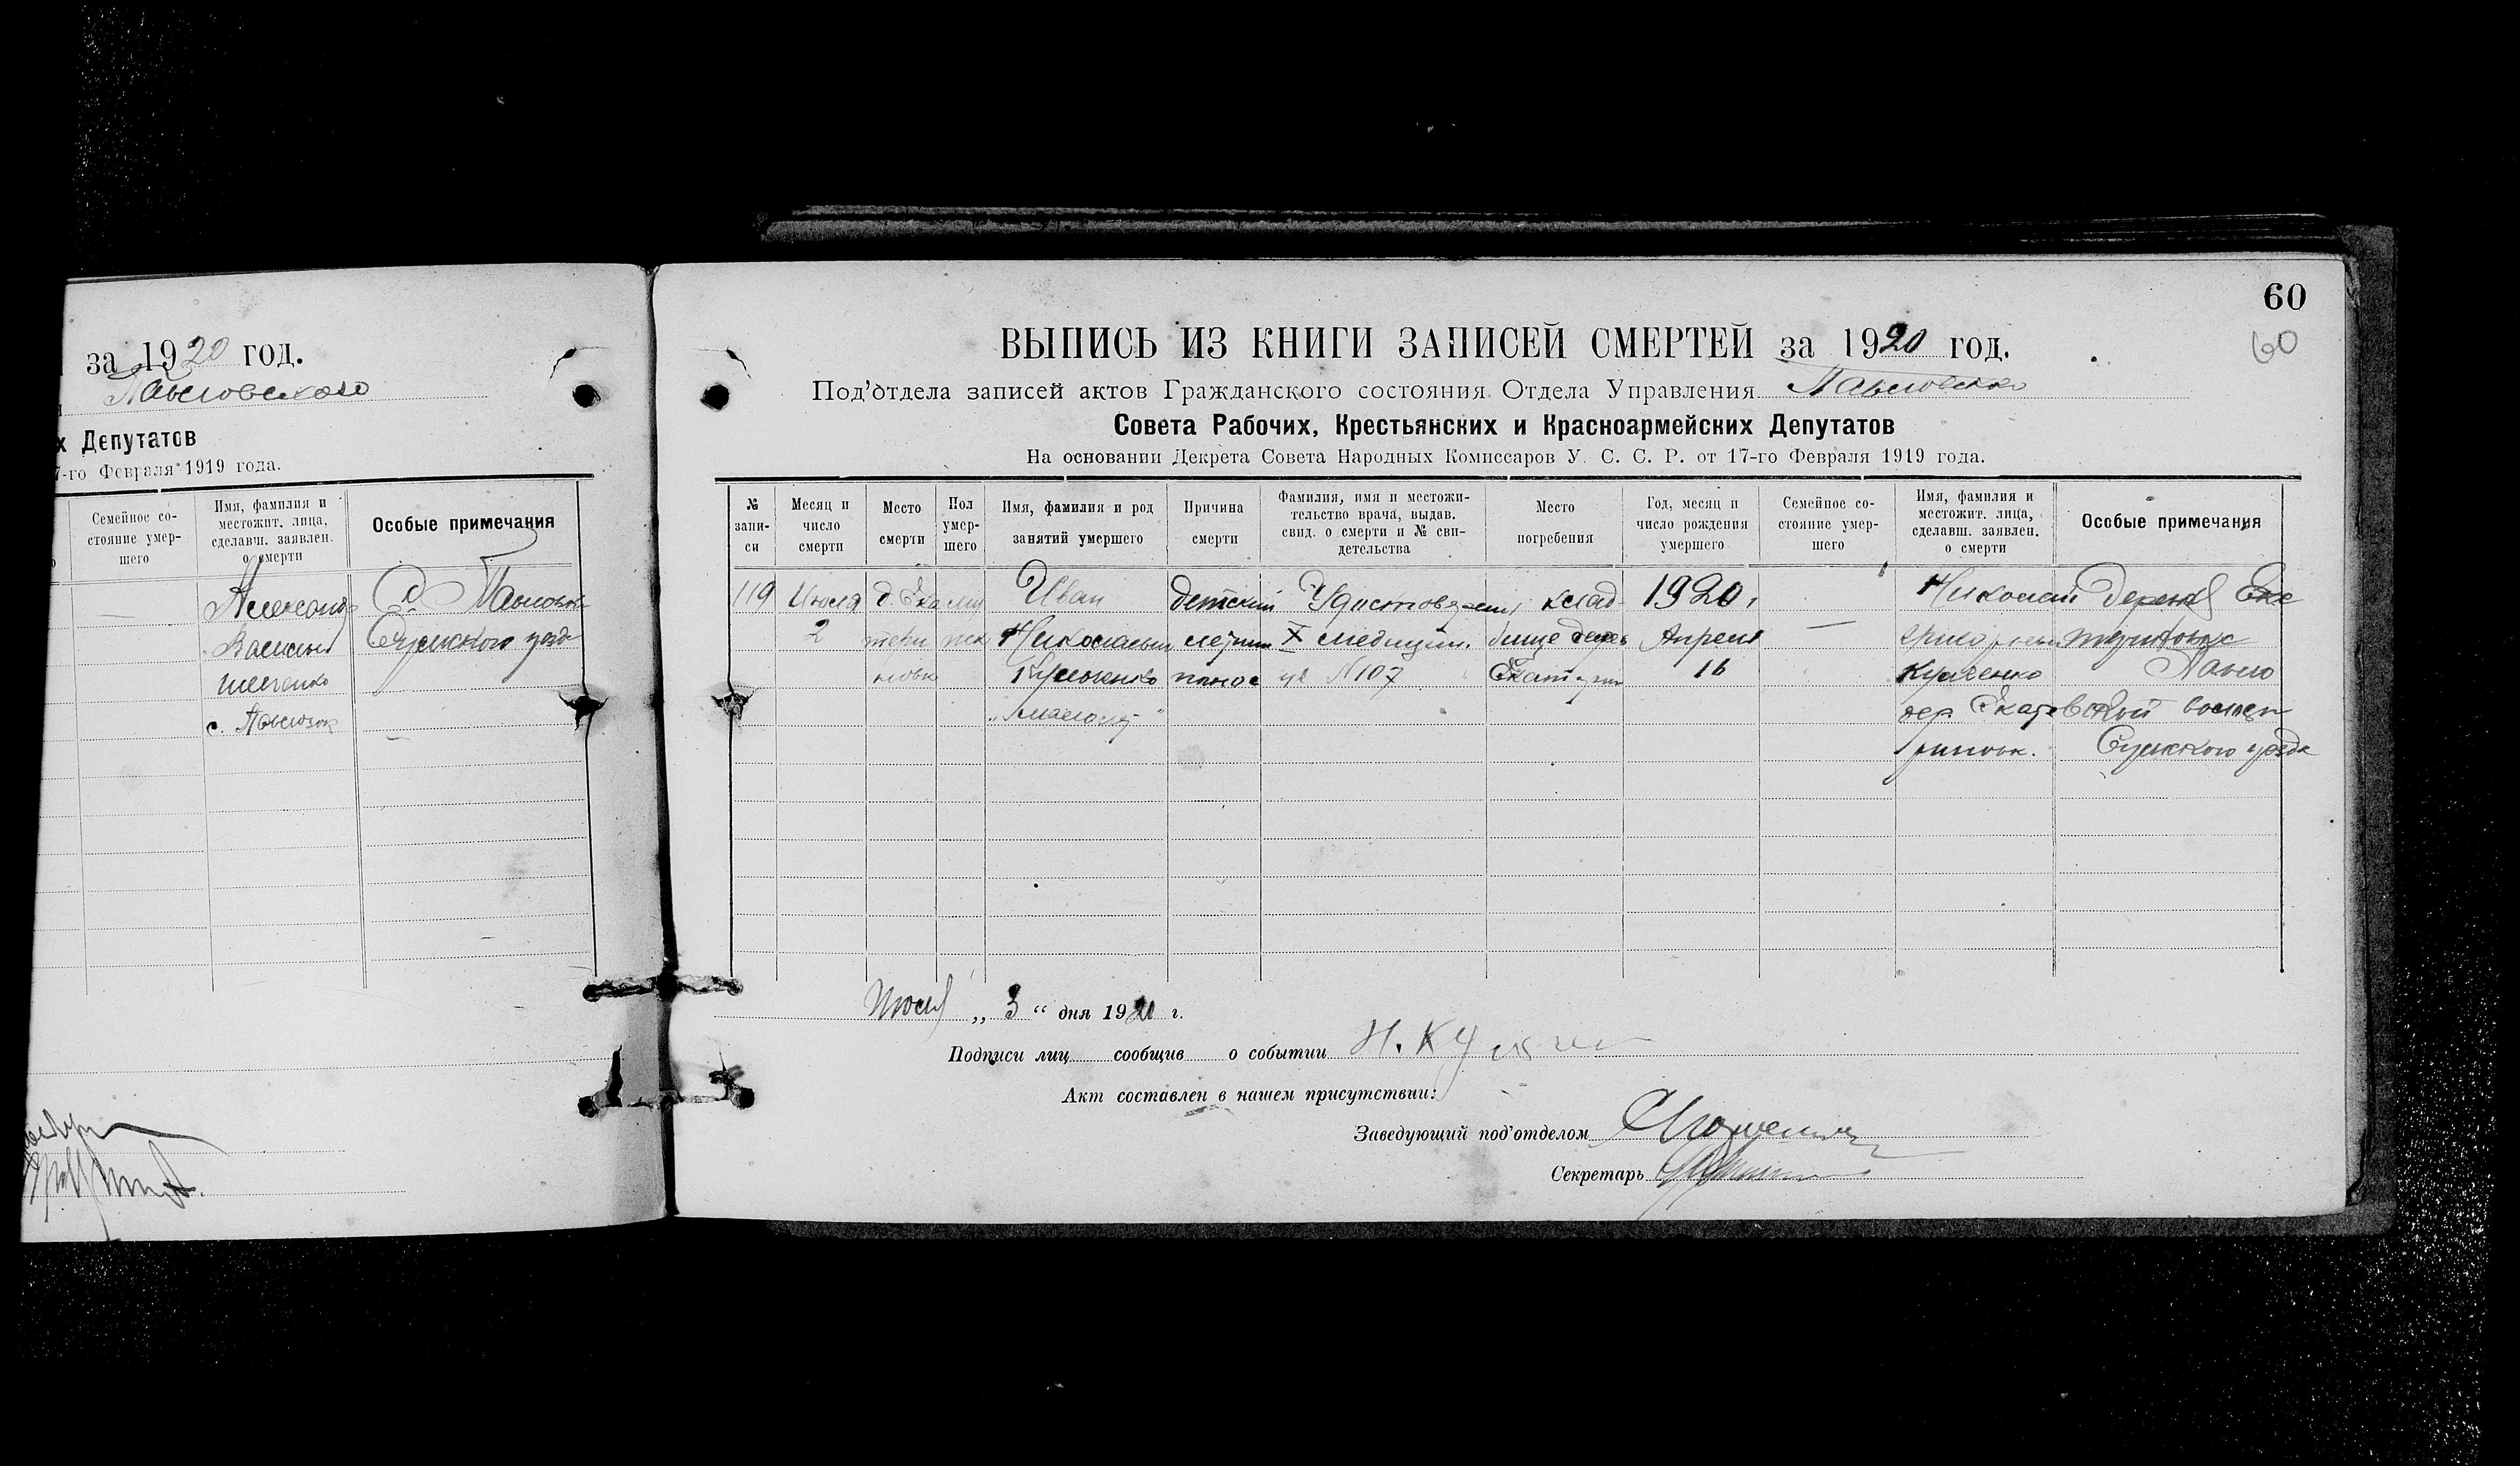 за 1920 год.
Павловского
х Депутатов
7-го Февраля 1919 года.
Семейное со-
стояние умер-
шего
Имя, фамилия и
местожит. лица,
сделавш. заявлен.
о смерти
Особые примечания
—
Василий
с. Павловк
С. Павловк
Сумского уезда
60
60
ВЫПИСЬ ИЗ КНИГИ ЗАПИСЕЙ СМЕРТЕЙ за 1920 год.
Под'отдела записей актов Гражданского состояния Отдела Управления Павловско
Совета Рабочих, Крестьянских и Красноармейских Депутатов
На основании Декрета Совета Народных Комиссаров У. С. С. Р. от 17-го Февраля 1919 года.
№
запи-
си
Месяц и
число
смерти
Место
смерти
Пол
умер-
шего
Имя, фамилия и род
занятий умершего
Причина
смерти
Фамилия, имя и местожи-
тельство врача, выдав.
свид. о смерти и № сви-
детельства
Место
погребения
Год, месяц и
число рождения
умершего
Семейное со-
стояние умер-
шего
Имя, фамилия и
местожит. лица,
сделавш. заявлен.
о смерти
Особые примечания
119
Июля
2
д. Ека
тери
новк
муж
Иван
Николаевич
детский
летний
понос
X медицин.
№ 107
клад-
бище дерев
Екатерин
1920,
Апреля
16
—
Николай
дер. Екате
риновк.
Деревня Ека
териновка
Павло
вской волости
Сумского уезда
Июля „ 3 “ дня 1920 г.
Подписи лиц сообщив о событии
Акт составлен в нашем присутствии:
Заведующий под'отделом
Секретарь